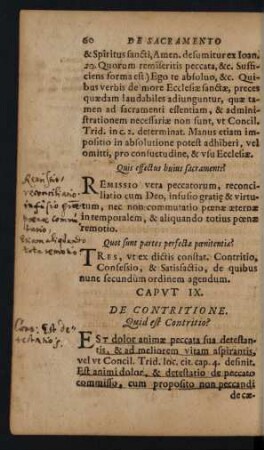 60 DE SACRAMENTO
& Spiritus sancti, Amen. desumitur ex Ioan.
20. Quorum remiseritis peccata, &c. Suffi-
ciens forma est) Ego te absoluo, &c. Quibus
verbis de more Ecclesiæ sanctæ, preces
quædam laudabiles adiunguntur, quæ ta-
men ad sacramenti essentiam, & adminis-
trationem necessariæ non sunt, vt Concil.
Trid. in c. 2. determinat. Manus etiam im-
positio in absolutione potest adhiberi, vel
omitti, pro consuetudine, & vsu Ecclesiæ.
Quis effectus huius sacramenti?
REMISSIO vera peccatorum, reconci-
liatio cum Deo, infusio gratiæ & virtu-
tum, nec non commutatio pœnæ æternæ
in temporalem, & aliquando totius pœnæ
remotio.
Remissio
reconciliatio
infusio
Quot sunt partes perfectæ pœnitentiæ?
TRES, vt ex dictis constat. Contritio,
Confessio, & Satisfactio, de quibus
nunc secundùm ordinem agendum.
CAPVT IX.
DE CONTRITIONE.
Quid est Contritio?
Con: Est de-
testatio
EST dolor animæ peccata sua detestan-
tis, & ad meliorem vitam aspirantis,
vel vt Concil. Trid. loc. cit. cap. 4. definit.
Est animi dolor, & detestatio de peccato
commisso, cum proposito non peccandi
de cæ-